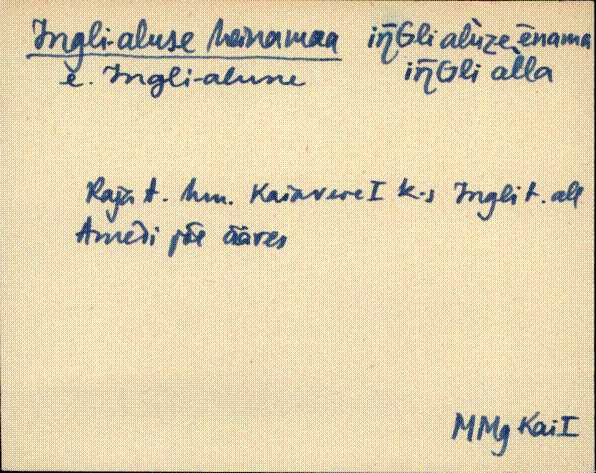 Ingli-aluse heinamaa iŋ̄Gli alùze ēnama
e. Ingli-alune iŋ̄Gli àlla
Raja t. hm. Kaiavere I k-s Ingli t. all
Amedi jõe ääres
MMg Kai I